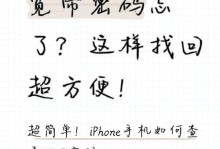 宽带密码忘
了？这样找回
超方便！
超简单！iPhone手机如何查